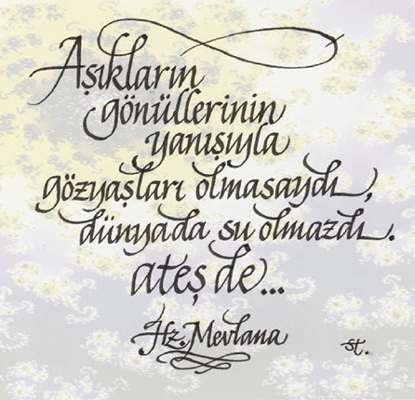 Aşıkların
gönüllerinin
yanışıyla
gözyaşları olmasaydı,
dünyada su olmazdı.
ateş de...
Hz. Mevlana
st.